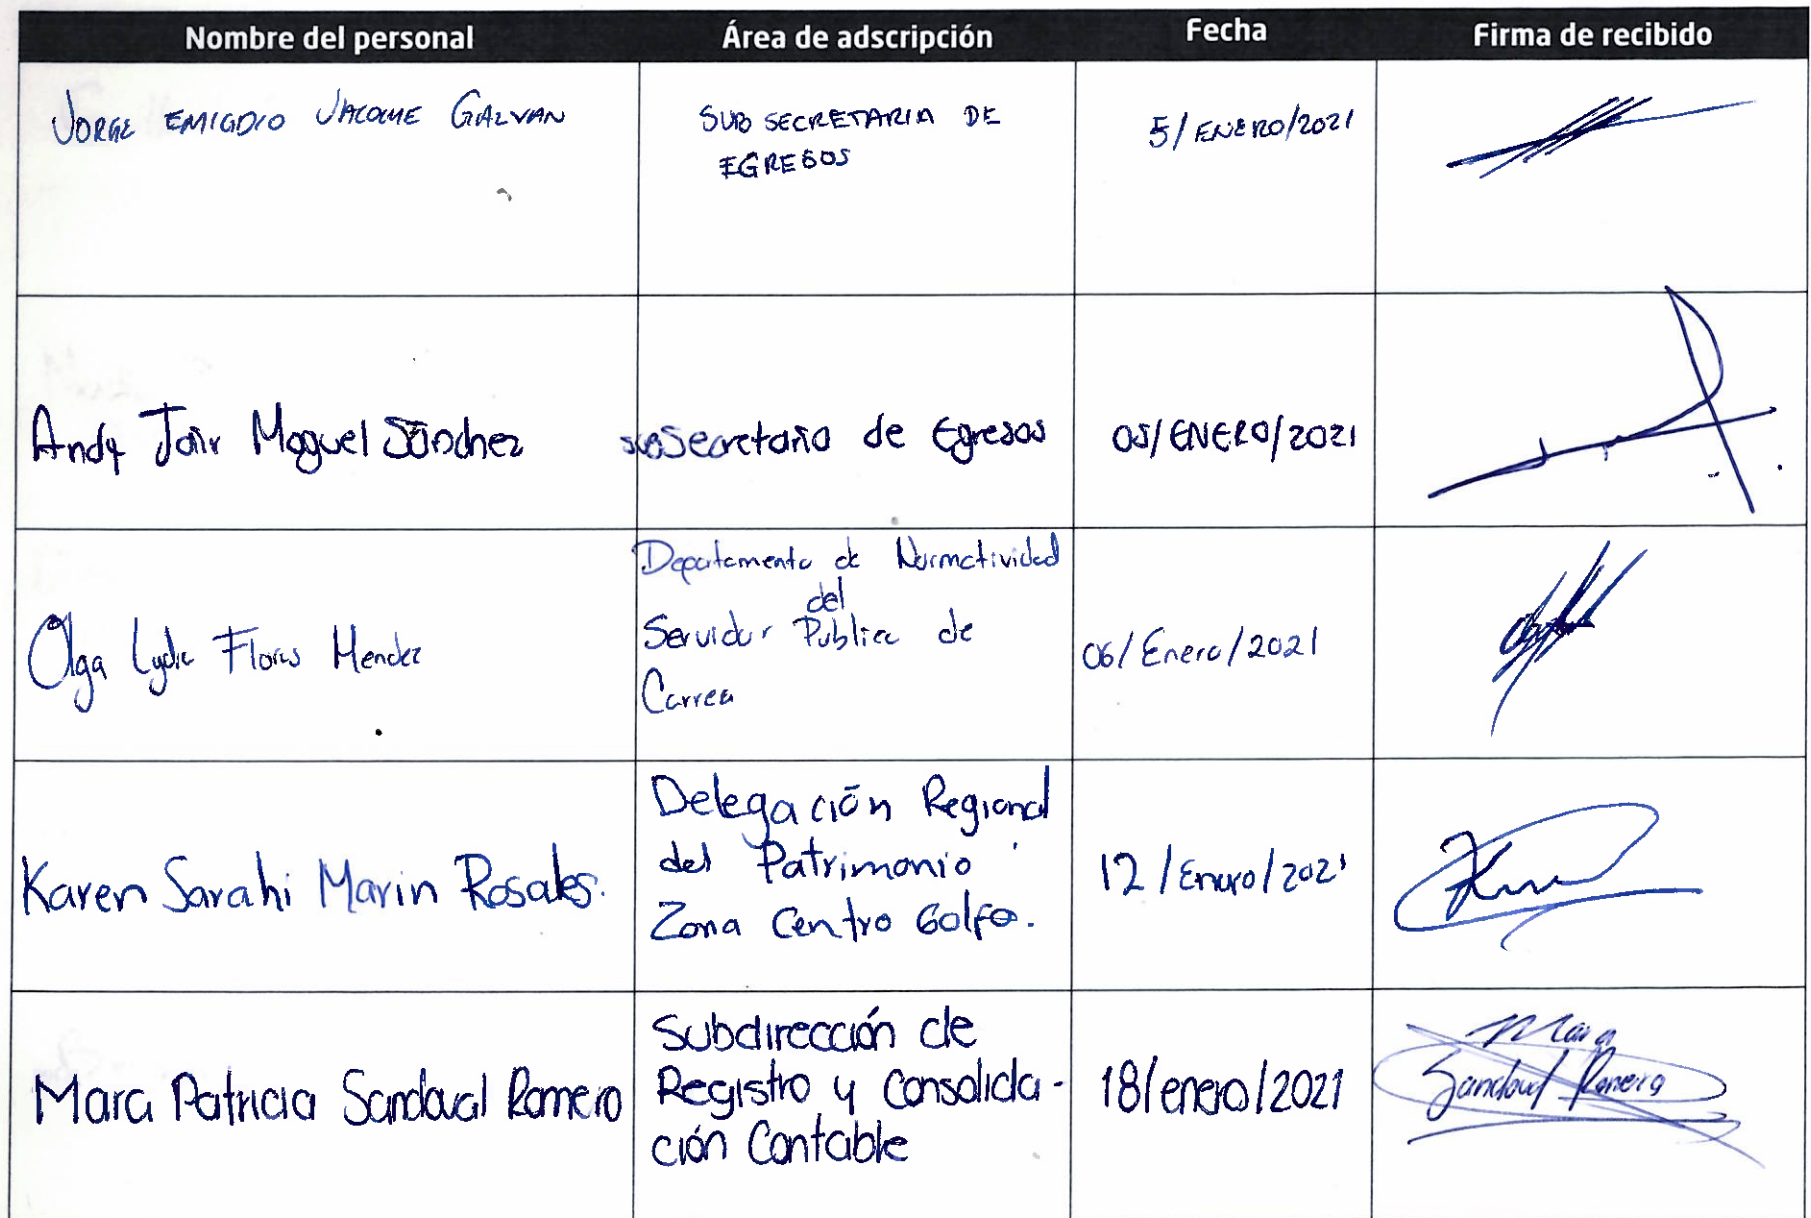 Nombre del personal Área de adscripción Fecha Firma de recibido
JORGE EMIGDIO JACOME GALVAN
SUBSECRETARIA DE
EGRESOS
5/ENERO/2021
Andy Jair Moguel Sánchez
subsecretaria de Egresos
05/ENERO/2021
Olga Lydia Flores Mendez
Departamento de Normatividad
del
Servidor Publico de
Carrera
06/Enero/2021
Karen Sarahi Marin Rosales.
Delegación Regional
del Patrimonio
Zona Centro Golfo.
12/Enero/2021
Mara Patricia Sandoval Romero
Subdirección de
Registro y Consolida-
ción Contable
18/enero/2021
Mara
Sandoval Romero